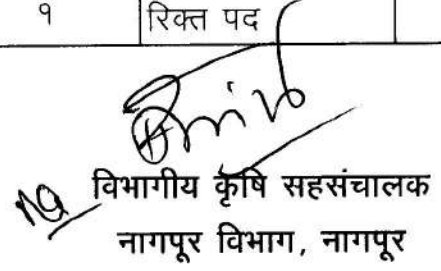 १ रिक्त पद
विभागीय कृषि सहसंचालक
नागपूर विभाग, नागपूर